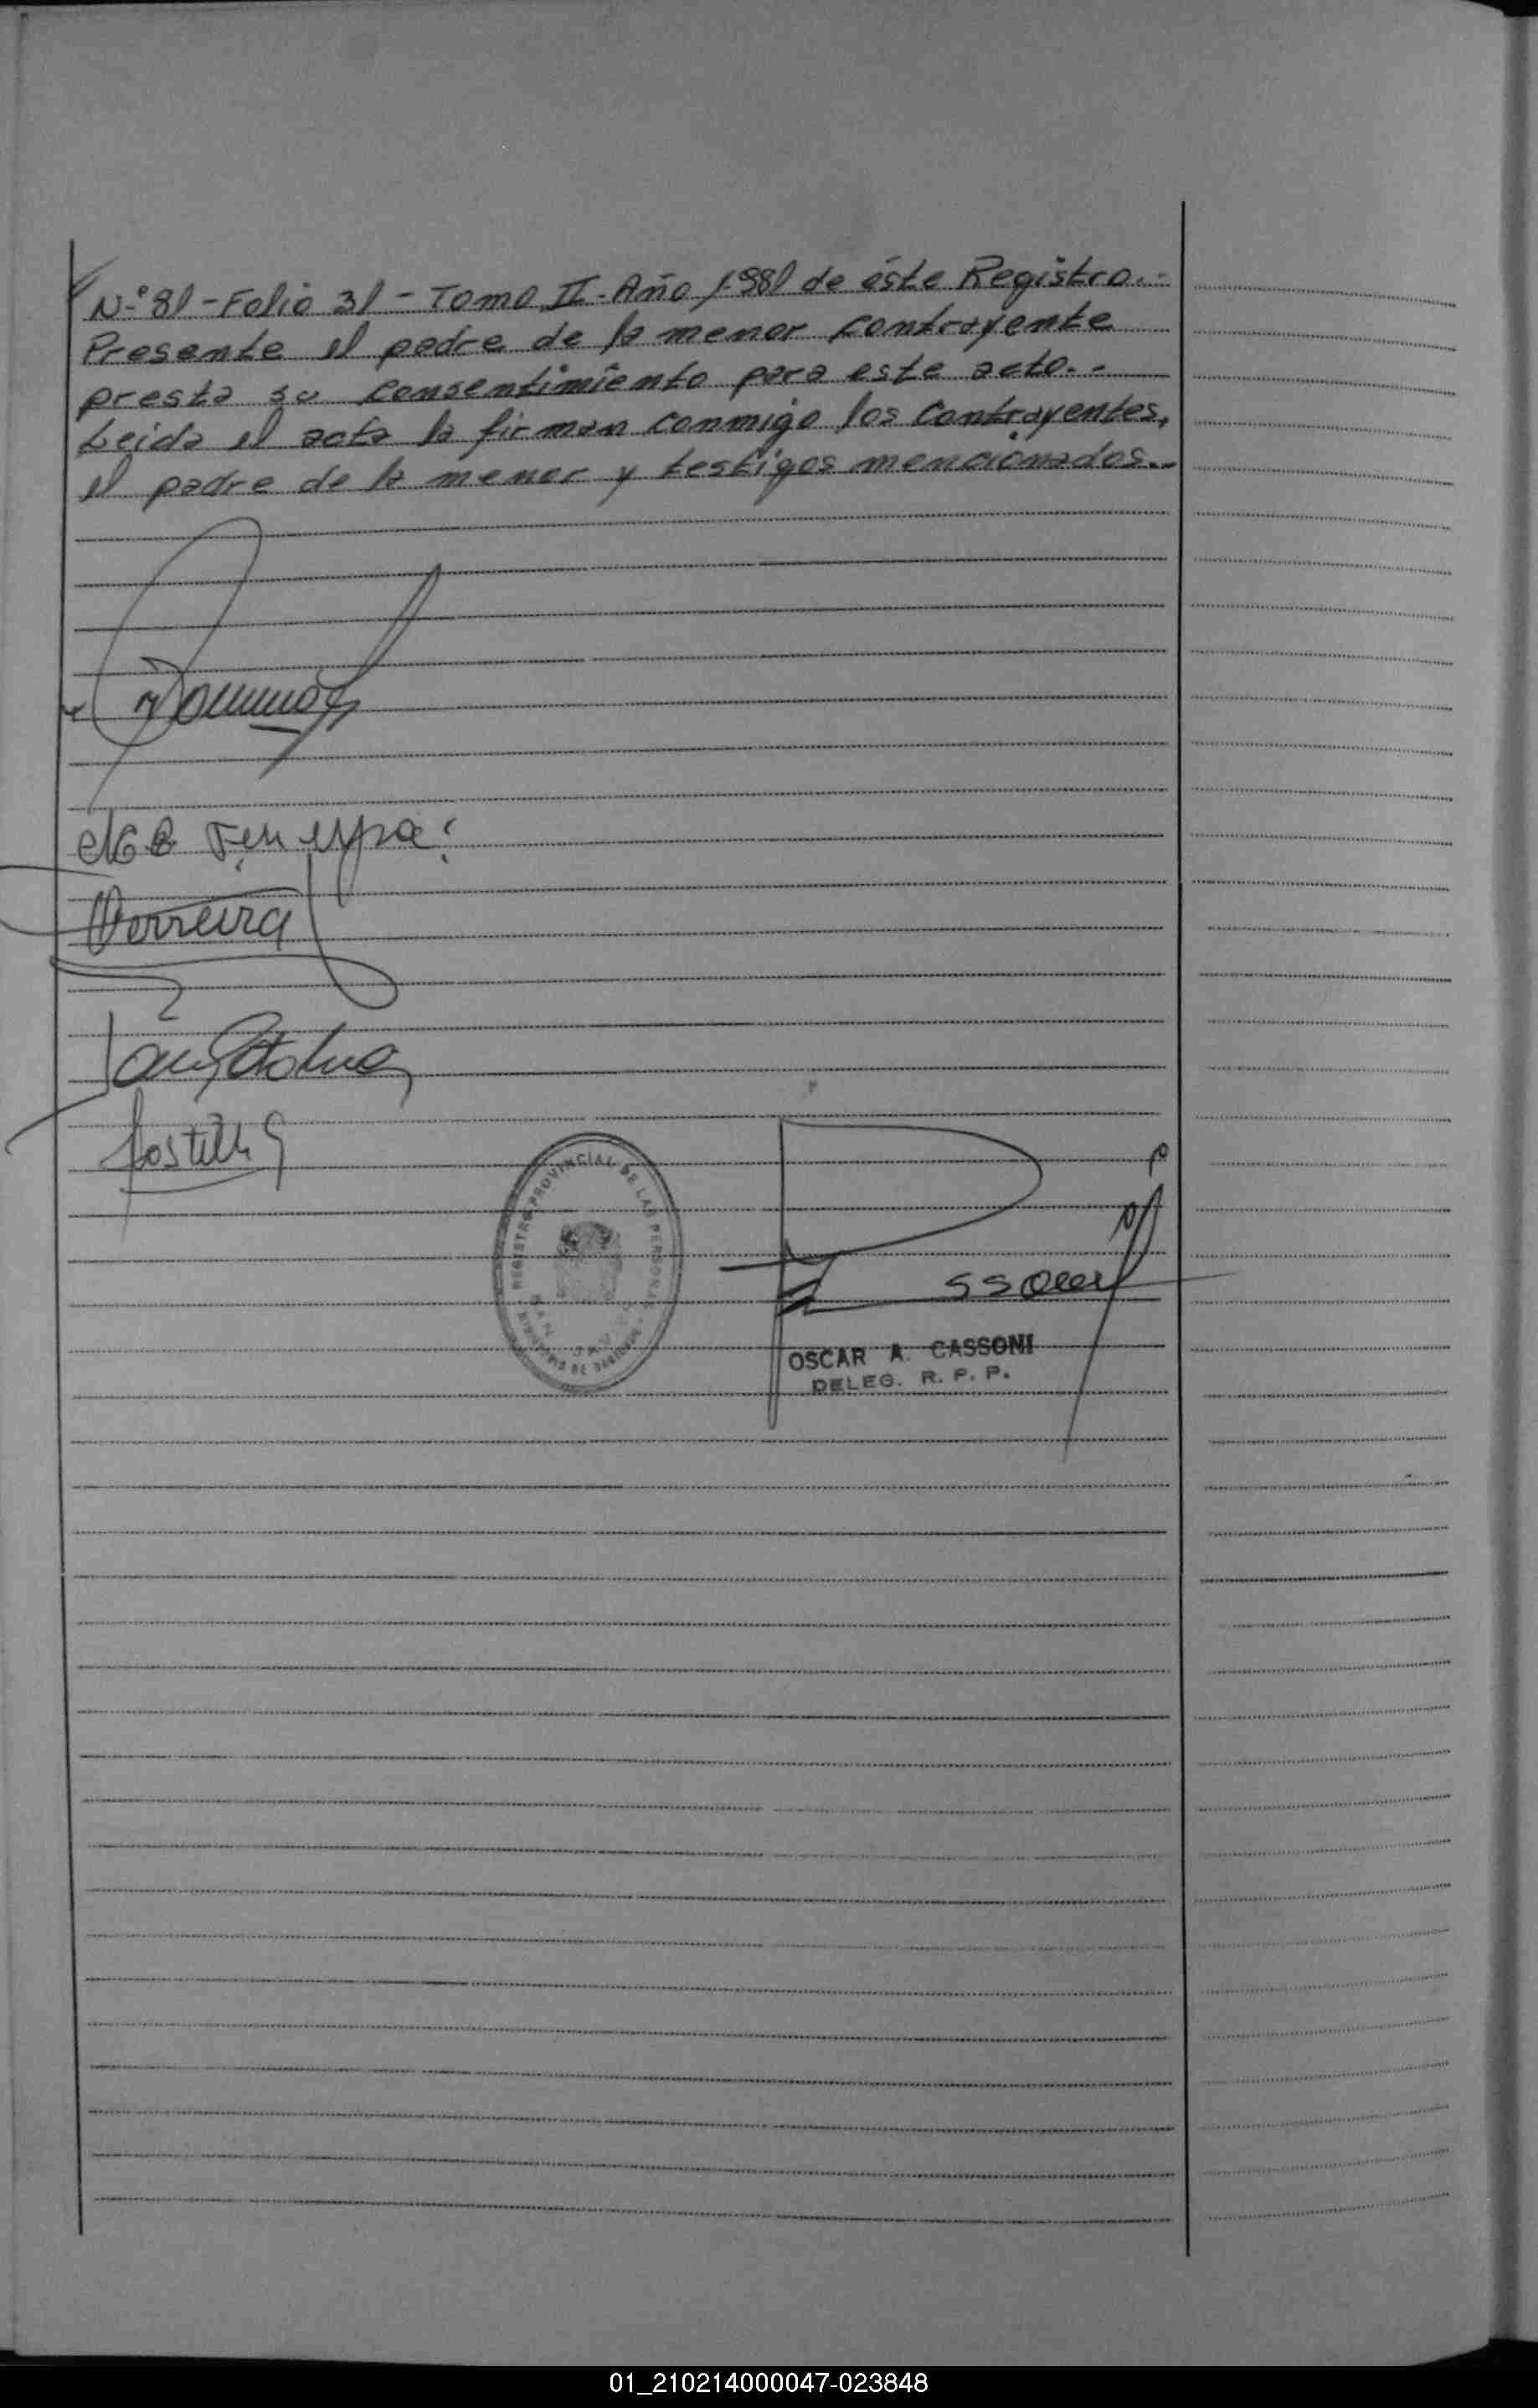 N-º 81 - Folio 31 - Tomo II - Año 1.981 de éste Registro.-
Presente el padre de la menor contrayente
presta su consentimiento para este acto.-
Leida el acta la firman conmigo los contrayentes,
el padre de la menor y testigos mencionados.-
Ferreira
REGISTRO PROVINCIAL DE LAS PERSONAS
OSCAR A. CASSONI
DELEG. R. P. P.
01_210214000047-023848